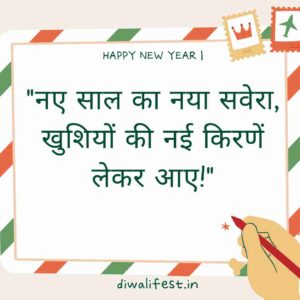 HAPPY NEW YEAR |
"नए साल का नया सवेरा,
खुशियों की नई किरणें
लेकर आए!"
diwalifest.in